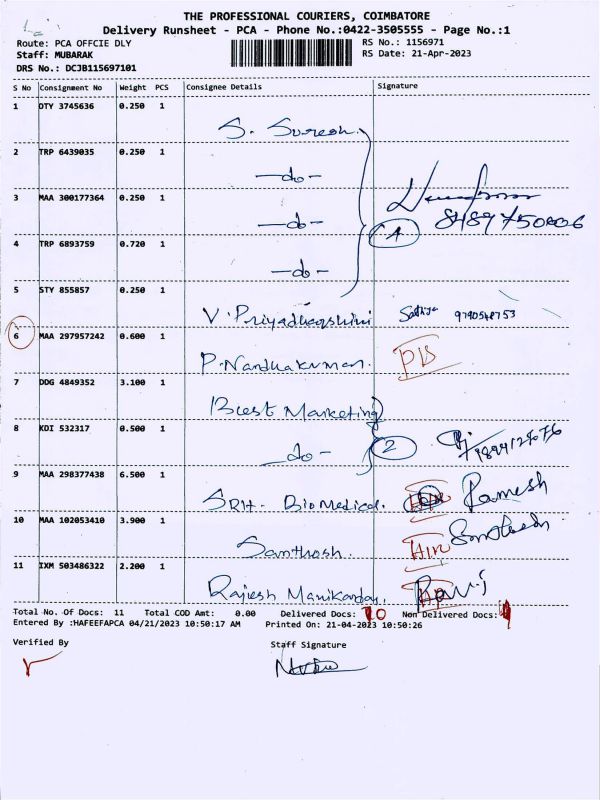 THE PROFESSIONAL COURIERS, COIMBATORE
Delivery Runsheet - PCA - Phone No.:0422-3505555 - Page No.:1
Route: PCA OFFCIE DLY RS No.: 1156971
Staff: MUBARAK RS Date: 21-Apr-2023
DRS No.: DCJB115697101
S No Consignment No Weight PCS Consignee Details Signature
1 DTY 3745636 0.250 1
S. Suresh.
2 TRP 6439035 0.250 1
—do—
3 MAA 300177364 0.250 1
—do— 4 8489750006
4 TRP 6893759 0.720 1
—do—
5 STY 855857 0.250 1
V. Priyadharshini Sathya 9790548753
6 MAA 297957242 0.600 1
P. Nandhakumar.
7 DDG 4849352 3.100 1
Buest Marketing
8 KDI 532317 0.500 1
—do— 2
9 MAA 298377438 6.500 1
SRH. BioMedical. Ramesh
10 MAA 102053410 3.900 1
Santhosh.
11 IXM 503486322 2.200 1
Rajesh Manikandan. Ravi
Total No. Of Docs: 11 Total COD Amt: 0.00 Delivered Docs: 10 Non Delivered Docs: 1
Entered By :HAFEEFAPCA 04/21/2023 10:50:17 AM Printed On: 21-04-2023 10:50:26
Verified By Staff Signature